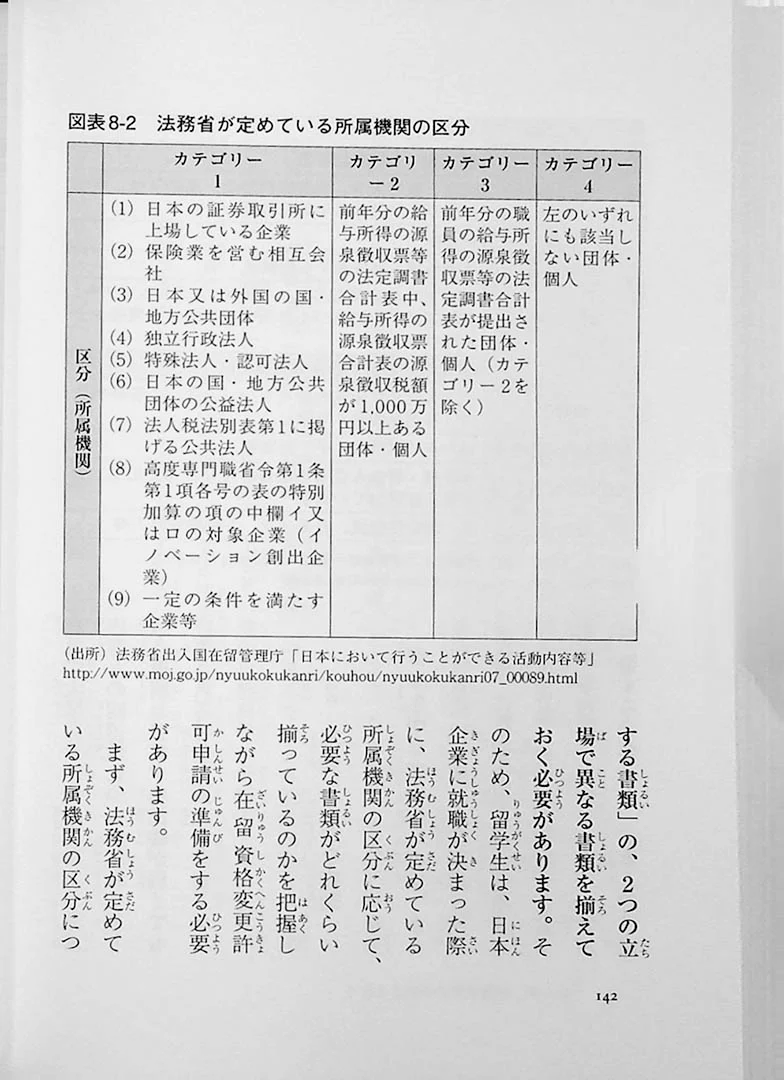 図表8-2 法務省が定めている所属機関の区分
カテゴリー
1
カテゴリ
ー2
カテゴリー
3
カテゴリー
4
区分（所属機関）
(1) 日本の証券取引所に
上場している企業
(2) 保険業を営む相互会
社
(3) 日本又は外国の国・
地方公共団体
(4) 独立行政法人
(5) 特殊法人・認可法人
(6) 日本の国・地方公共
団体の公益法人
(7) 法人税法別表第1に掲
げる公共法人
(8) 高度専門職省令第1条
第1項各号の表の特別
加算の項の中欄イ又
はロの対象企業（イ
ノベーション創出企
業）
(9) 一定の条件を満たす
企業等
前年分の給
与所得の源
泉徴収票等
の法定調書
合計表中、
給与所得の
源泉徴収票
合計表の源
泉徴収税額
が1,000万
円以上ある
団体・個人
前年分の職
員の給与所
得の源泉徴
収票等の法
定調書合計
表が提出さ
れた団体・
個人（カテ
ゴリー2を
除く）
左のいずれ
にも該当し
ない団体・
個人
（出所）法務省出入国在留管理庁「日本において行うことができる活動内容等」
http://www.moj.go.jp/nyuukokukanri/kouhou/nyuukokukanri07_00089.html
する書類」の、2つの立
場で異なる書類を揃えて
おく必要があります。そ
のため、留学生は、日本
企業に就職が決まった際
に、法務省が定めている
所属機関の区分に応じて、
必要な書類がどれくらい
揃っているのかを把握し
ながら在留資格変更許
可申請の準備をする必要
があります。
まず、法務省が定めて
いる所属機関の区分につ
142